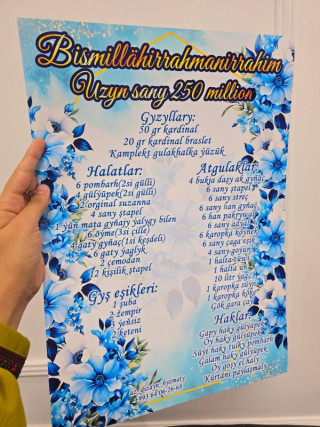 Bismillähirrahmanirrahim
Uzyn sany 250 million
Gyzyllary:
50 gr kardinal
20 gr kardinal braslet
Kamplekt gulakhalka ýüzük
Halatlar:
6 pombarh(2si gülli)
4 gülyüpek(2si gülli)
2 orginal suzanna
4 sany ştapel
1 ýüň mata gyňaty ýalygy bilen
6 öýme(3si çille)
4 gaty gyňaç(1si keşdeli)
6 gaty ýaglyk
2 çemodan
12 kişilik ştapel
Gyş eşikleri:
1 şuba
2 žempir
3 ýeňsiz
2 keteni
Atgulaklar:
4 bukja daşy ak gyňaç
6 sany ştapel
6 sany streç
6 sany han gyňaç
6 han pakrywat
6 sany adyal
6 karopka köýnek
6 sany çaga eşik
4 sany goýun
1 halta
1 halta un
10 litr ýag
1 karopka süýji
1 karopka kök
Gök gara çaý
Haklar:
Gapy haky gülyüpek
Oý haky gülyüpek
Süýt haky tulky pombarh
Galam haky gülyüpek
Oý goşy el haly
Kürtäni paýlaşmaly
dizaýn_hyzmaty
+993 64 06-26-68